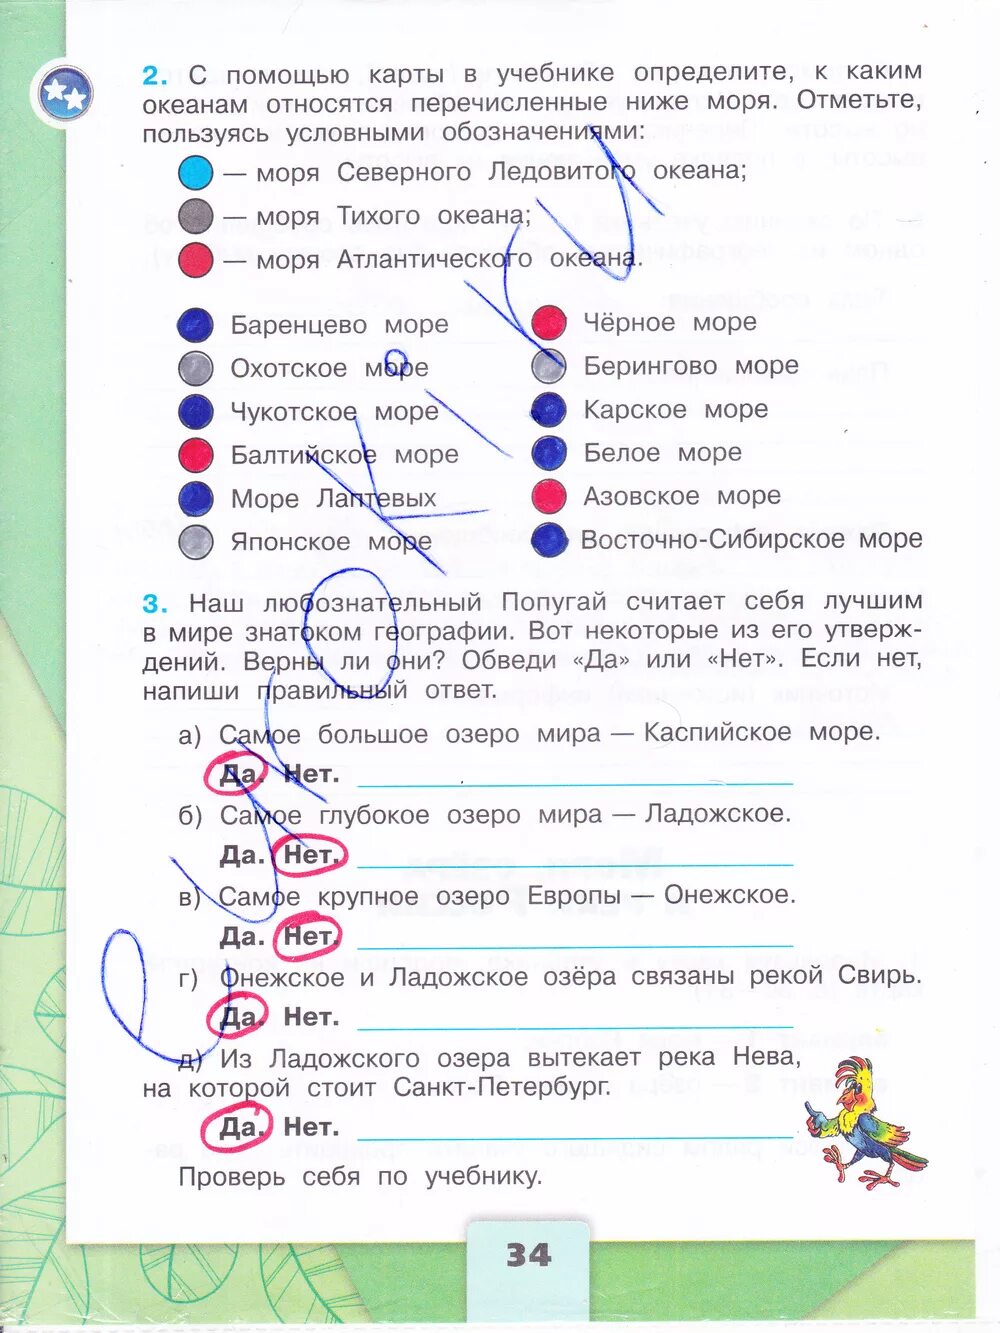 2. С помощью карты в учебнике определите, к каким
океанам относятся перечисленные ниже моря. Отметьте,
пользуясь условными обозначениями:
— моря Северного Ледовитого океана;
— моря Тихого океана;
— моря Атлантического океана.
Баренцево море
Охотское море
Чукотское море
Балтийское море
Море Лаптевых
Японское море
Чёрное море
Берингово море
Карское море
Белое море
Азовское море
Восточно-Сибирское море
3. Наш любознательный Попугай считает себя лучшим
в мире знатоком географии. Вот некоторые из его утверж-
дений. Верны ли они? Обведи «Да» или «Нет». Если нет,
напиши правильный ответ.
а) Самое большое озеро мира — Каспийское море.
Да. Нет.
б) Самое глубокое озеро мира — Ладожское.
Да. Нет.
в) Самое крупное озеро Европы — Онежское.
Да. Нет.
г) Онежское и Ладожское озёра связаны рекой Свирь.
Да. Нет.
д) Из Ладожского озера вытекает река Нева,
на которой стоит Санкт-Петербург.
Да. Нет.
Проверь себя по учебнику.
34